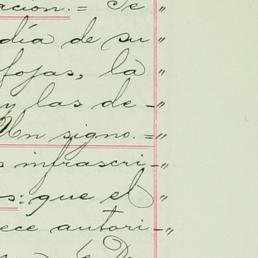 ación.= Se "
día de su "
fojas, la "
y las de-"
Un signo.="
s infrascri-"
s: que el "
ece autori-"